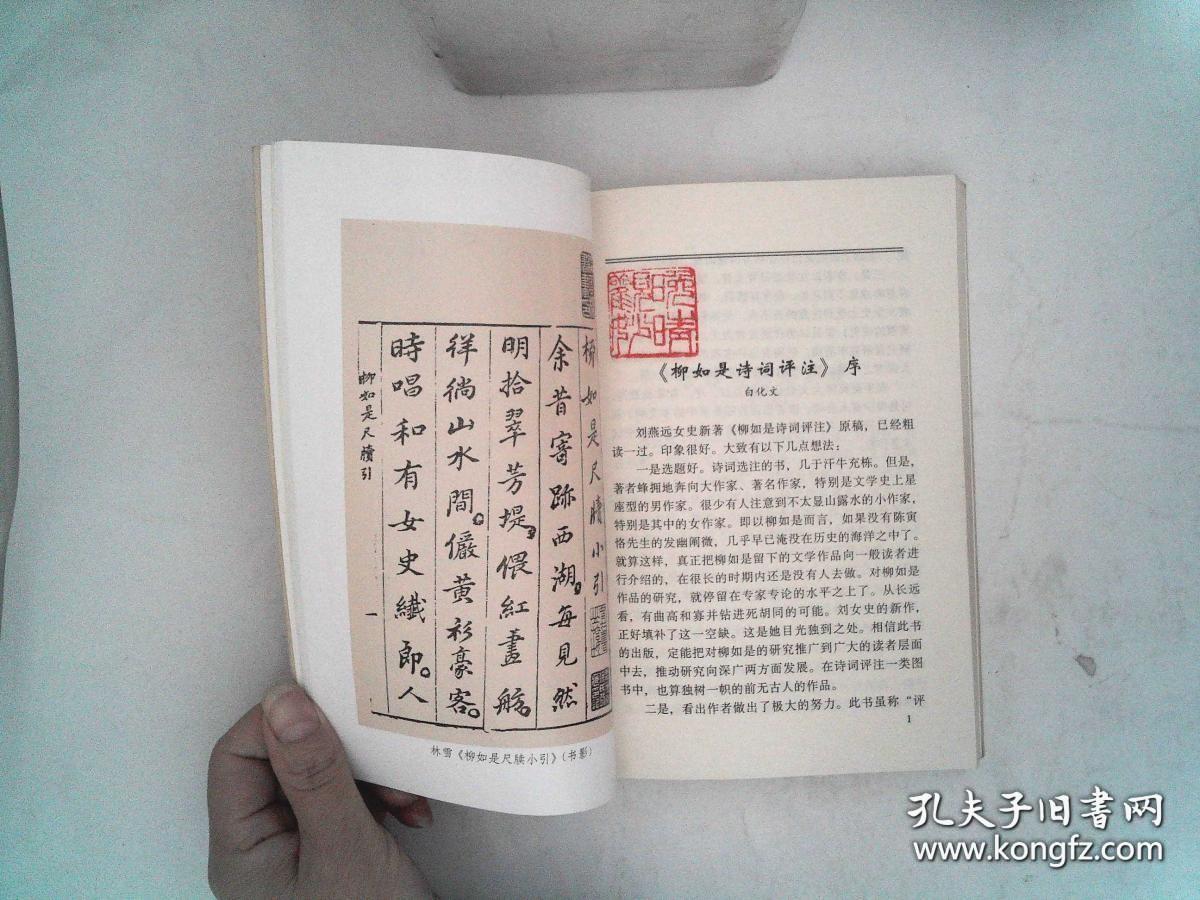 柳如是尺牘小引
余昔寄跡西湖。每見然
明拾翠芳堤。偎紅畫舫。
徉徜山水間。儼黃衫豪客。
時唱和有女史纖郎。人
柳如是尺牘引
一
林雪《柳如是尺牍小引》(书影)
《柳如是诗词评注》序
白化文
刘燕远女史新著《柳如是诗词评注》原稿，已经粗
读一过。印象很好。大致有以下几点想法：
一是选题好。诗词选注的书，几于汗牛充栋。但是，
著者蜂拥地奔向大作家、著名作家，特别是文学史上星
座型的男作家。很少有人注意到不太显山露水的小作家，
特别是其中的女作家。即以柳如是而言，如果没有陈寅
恪先生的发幽阐微，几乎早已淹没在历史的海洋之中了。
就算这样，真正把柳如是留下的文学作品向一般读者进
行介绍的，在很长的时期内还是没有人去做。对柳如是
作品的研究，就停留在专家专论的水平之上了。从长远
看，有曲高和寡并钻进死胡同的可能。刘女史的新作，
正好填补了这一空缺。这是她目光独到之处。相信此书
的出版，定能把对柳如是的研究推广到广大的读者层面
中去，推动研究向深广两方面发展。在诗词评注一类图
书中，也算独树一帜的前无古人的作品。
二是，看出作者做出了极大的努力。此书虽称“评
1
孔夫子旧書网
www.kongfz.com